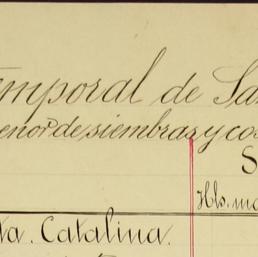 emporal de Sa
enor de siembras y co
S
Hls. m
ta. Catalina.